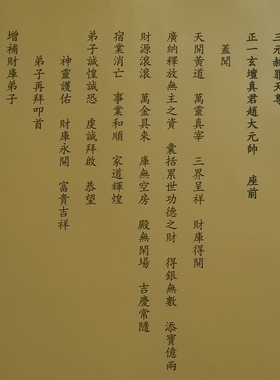 三元赦罪天尊
正一玄壇真君趙大元帥 座前
蓋聞
天開黃道 萬靈真宰 三界呈祥 財庫得開
廣納釋放無主之資 囊括累世功德之財 得銀無數 添寶億兩
財源滾滾 萬金具來 庫無空房 殿無閑場 吉慶常隨
宿業消亡 事業和順 家道輝煌
弟子誠惶誠恐 虔誠拜啟 恭望
神靈護佑 財庫永開 富貴吉祥
弟子再拜叩首
增補財庫弟子